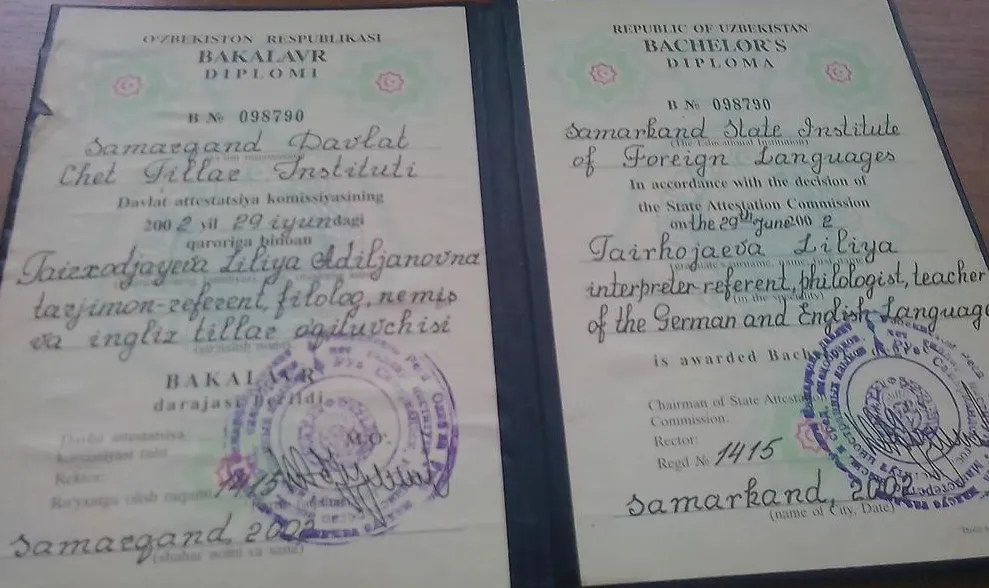 O'ZBEKISTON RESPUBLIKASI
BAKALAVR
DIPLOMI
B № 098790
Samarqand Davlat
Chet Tillar Instituti
Davlat attestatsiya komissiyasining
2002 yil 29 iyundagi
qaroriga binoan
Tairxodjayeva Liliya Adiljanovna
tarjimon-referent, filolog, nemis
va ingliz tillar o'qituvchisi
BAKALAVR
darajasi berildi
Davlat attestatsiya
komissiyasi raisi
Rektor:
Ro'yxatga olish raqami 1415
M.O.
Samarqand, 2002
(shahar nomi va sana)
REPUBLIC OF UZBEKISTAN
BACHELOR'S
DIPLOMA
B № 098790
Samarkand State Institute
(The Educational Institution)
of Foreign Languages
In accordance with the decision of
the State Attestation Commission
on the 29th June 2002
Tairhojaeva Liliya
interpreter-referent, philologist, teacher
(in the speciality)
of the German and English Language
is awarded Bach
Chairman of State Attesta
Commission:
Rector:
Regd № 1415
Samarkand, 2002
(name of City, Date)